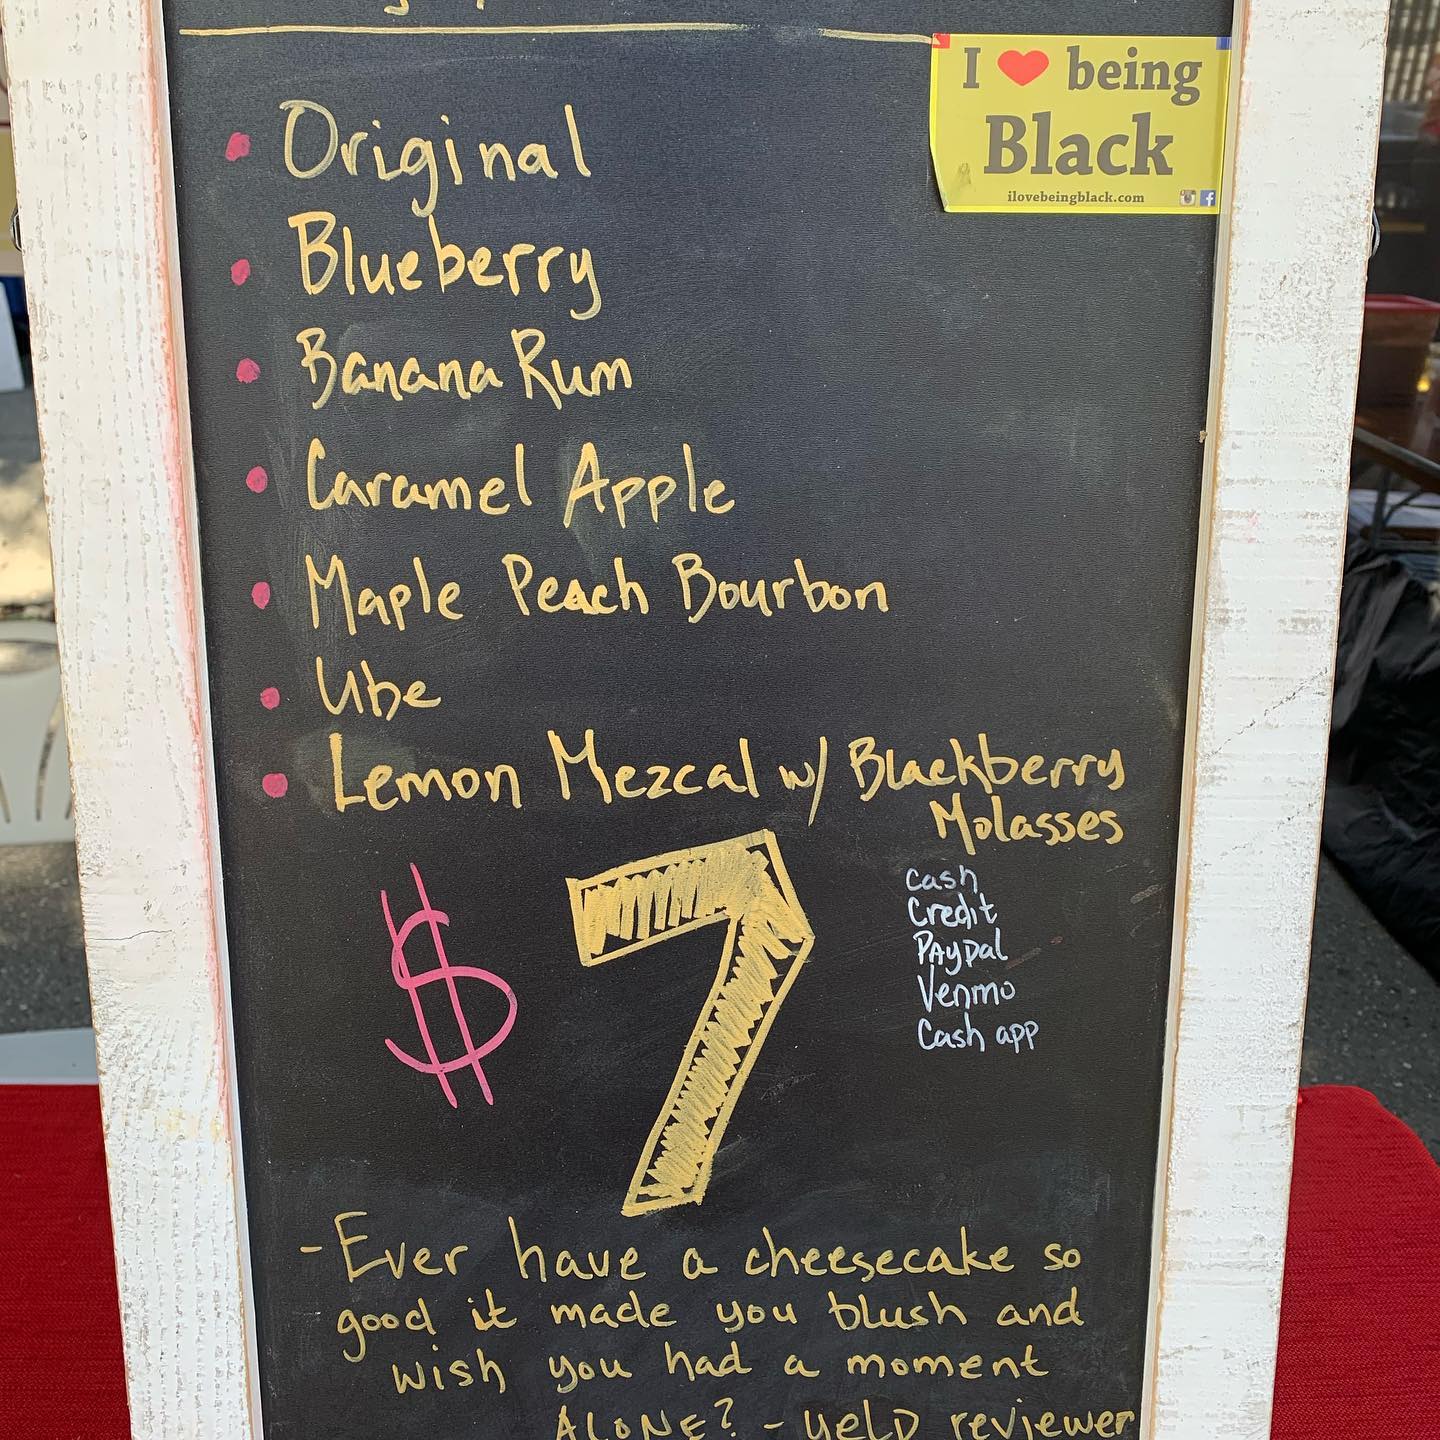 I ❤ being
Black
ilovebeingblack.com
• Original
• Blueberry
• Banana Rum
• Caramel Apple
• Maple Peach Bourbon
• Ube
• Lemon Mezcal w/ Blackberry
Molasses
$7
Cash
Credit
PAypal
Venmo
Cash app
- Ever have a cheesecake so
good it made you blush and
wish you had a moment
ALONE? - yelp reviewer